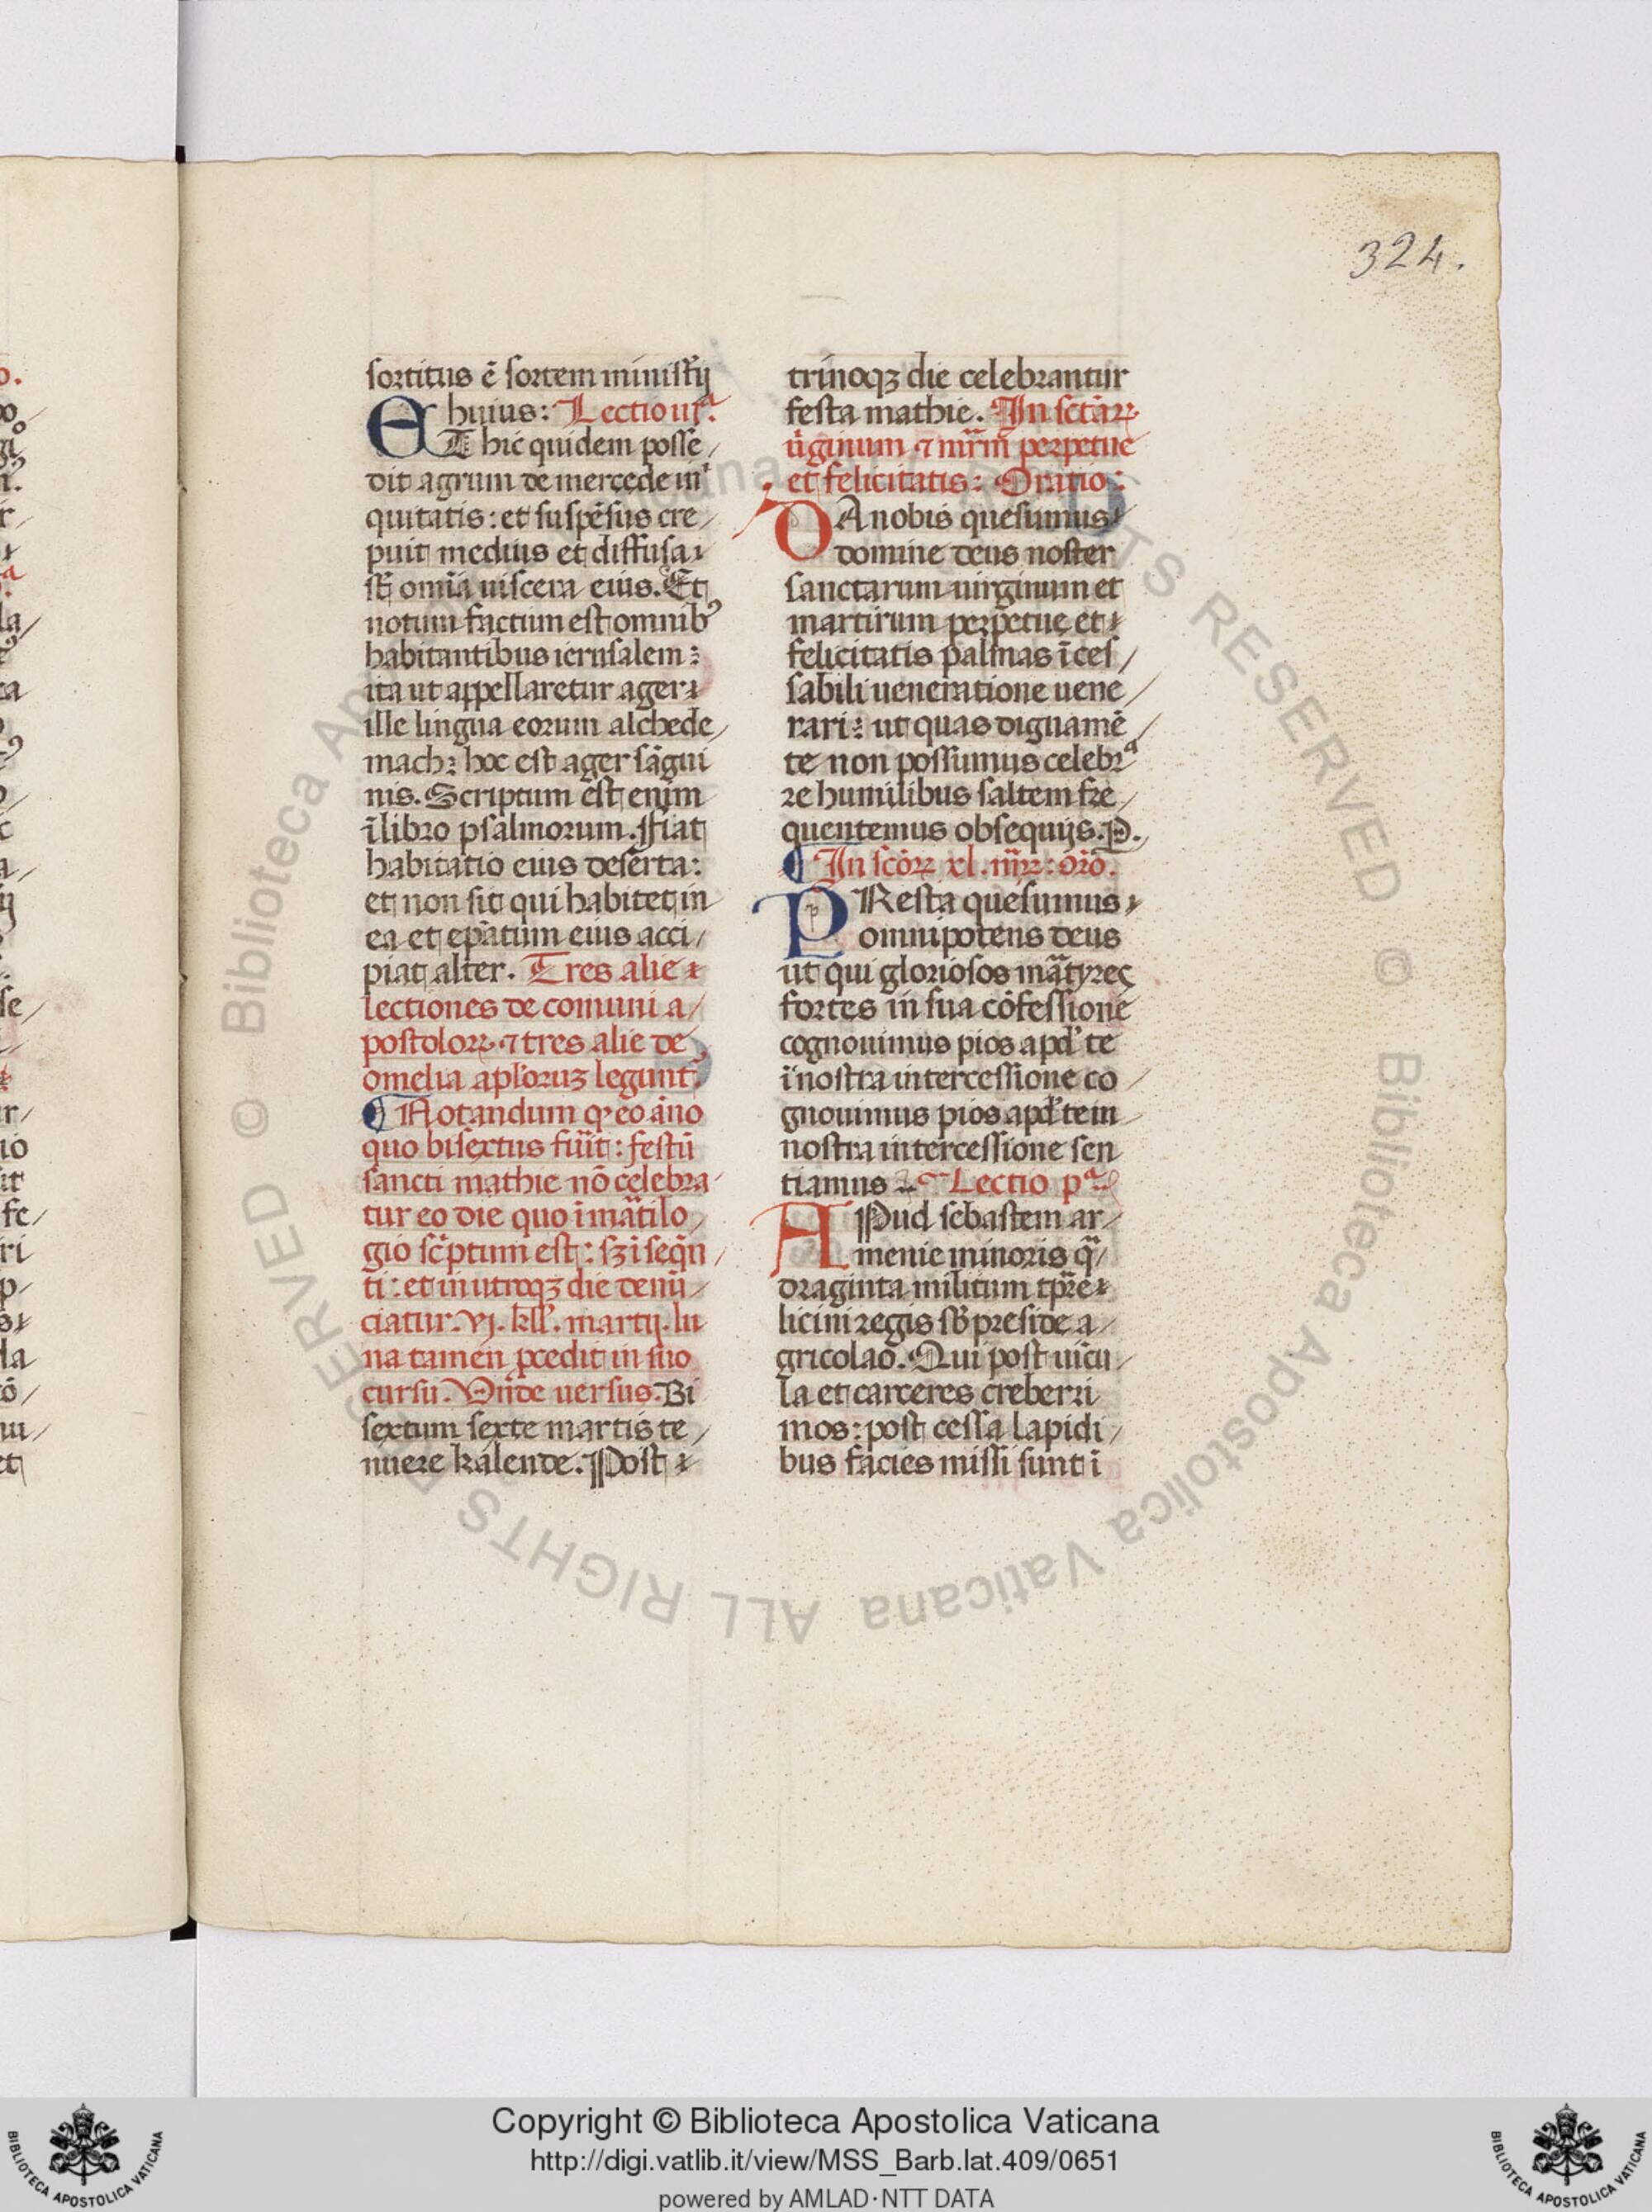 324.
sortitus ē sortem ministꝛij
huius: Lectio iijª.
ET hic quidem posse/
dit agrum de mercede ini
quitatis: et suspēsus cre/
puit medius et diffusa
st̄ omīa uiscera eius. Et
notum factum est omnibꝰ
habitantibus ierusalem:
ita ut appellaretur ager
ille lingua eorum alchede/
mach: hoc est ager sāgui
nis. Scriptum est enim
ī libro psalmorum. Fiat
habitatio eius deserta:
et non sit qui habitet in
ea et ep̄atum eius acci/
piat alter. Tres alie
lectiones de comuni a/
postoloꝝ ⁊ tres alie de
omelia apl'oruꝫ legunt᷑
¶ Notandum ꝙ eo āno
quo bisextus fuīt: festū
sancti mathie nō celebra
tur eo die quo ī mātilo/
gio sc̄ptum est: sꝫ ī seq̄n/
ti: et in utroqꝫ die denū/
ciatur. vj. kl'. martij. lu
na tamen ꝓcedit in suo
cursu. Vn̄de uersus. Bi
sextum sexte martis te/
nuere kalende. Post
trinoqꝫ die celebrantur
festa mathie. In sctāꝝ
ūginum ⁊ mr̄m̄ perpetue
et felicitatis: Oratio:
DA nobis quesumus
domine deus noster
sanctarum uirginum et
martirum perpetue et
felicitatis palmas īces/
sabili ueneratione uene/
rari: ut quas dignamē/
te non possumus celebrª
re humilibus saltem fre/
quentemus obsequijs. P.
¶ In scōꝝ xl. mr̄ꝝ: orō.
PResta quesumus
omnipotens deus
ut qui gloriosos mātyres
fortes in sua cōfessione
cognouimus pios apd' te
ī nostra intercessione co/
gnouimus pios apd' te in
nostra intercessione sen
tiamus Lectio pª
APud sebastem ar/
menie minoris qª/
draginta militum tp̄re
licini regis sb' preside a/
gricolao. Qui post uīcu/
la et carceres creberri
mos: post cessa lapidi/
bus facies missi sunt ī
Copyright © Biblioteca Apostolica Vaticana
http://digi.vatlib.it/view/MSS_Barb.lat.409/0651
powered by AMLAD·NTT DATA